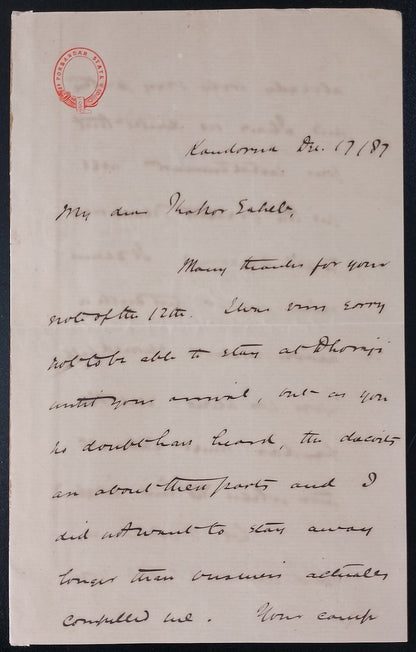 PORBANDAR STATE
Kandorna Dec. 17/87
My dear Thakor Saheb,
Many thanks for your
note of the 12th. I was very sorry
not to be able to stay at Dhoraji
until your arrival, but as you
no doubt have heard, the dacoits
are about these parts and I
did not want to stay away
longer than business actually
compelled me. Your camp